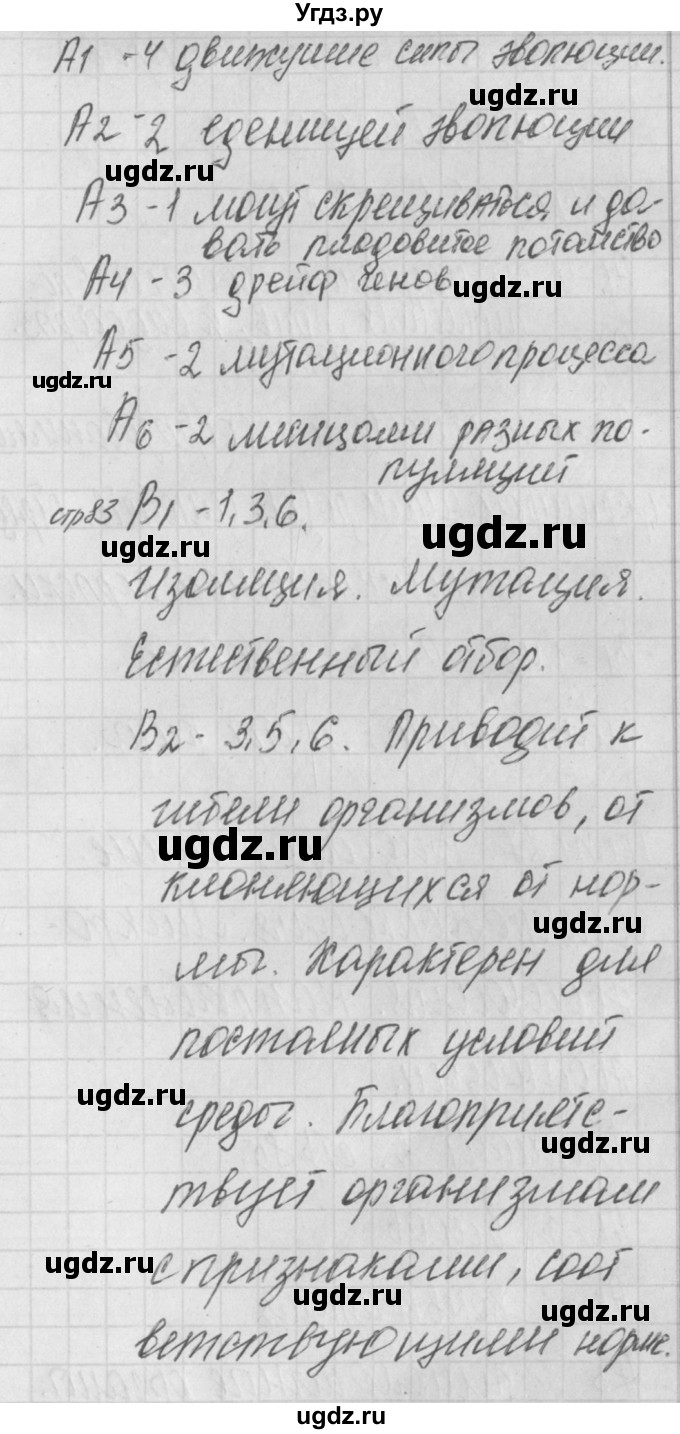 Угдз.ру
А1 -4 движущие силы эволюции.
ugdz.ru
А2 -2 еденицей эволюции
ugdz.ru
А3 -1 могут скрещиваться и да-
вать плодовитое потомство
А4 - 3 дрейф генов
ugdz.ru
А5 -2 мутационного процесса
ugdz.ru
А6 -2 месцоми разных по-
пуляций
стр83 В1 -1,3,6.
ugdz.ru
ugdz.ru
Изоляция. Мутация.
Естественный отбор.
В2 - 3,5,6. Приводит к
гибели организмов, от
ugdz.ru
клоняющихся от нор-
ugdz.ru
мы. Характерен для
постоянных условий
ugdz.ru
среды. Благоприятс-
ugdz.ru
твует организмам
ugdz.ru
с признаками, соот
ugdz.ru
ugdz.ru
ветствующими норме.
ugdz.ru